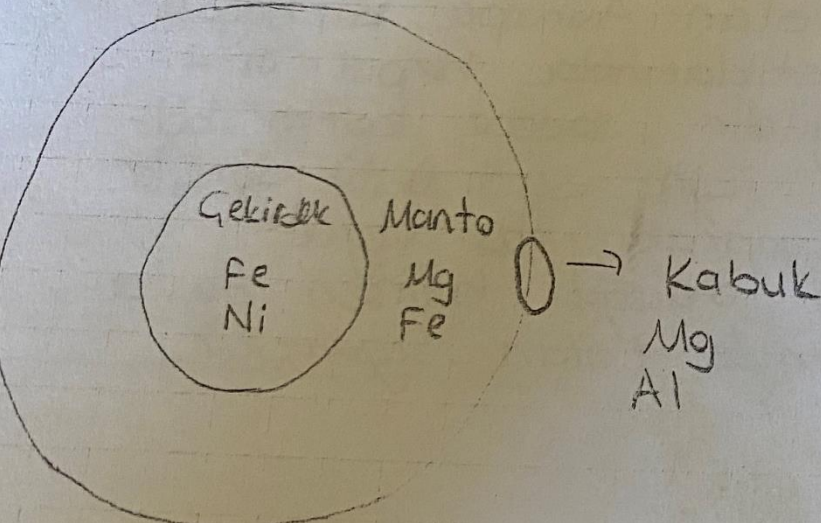 Çekirdek
Fe
Ni
Manto
Mg
Fe
Kabuk
Mg
Al